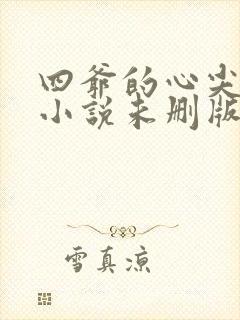 四爷的心尖
小說未删版
雪真凉